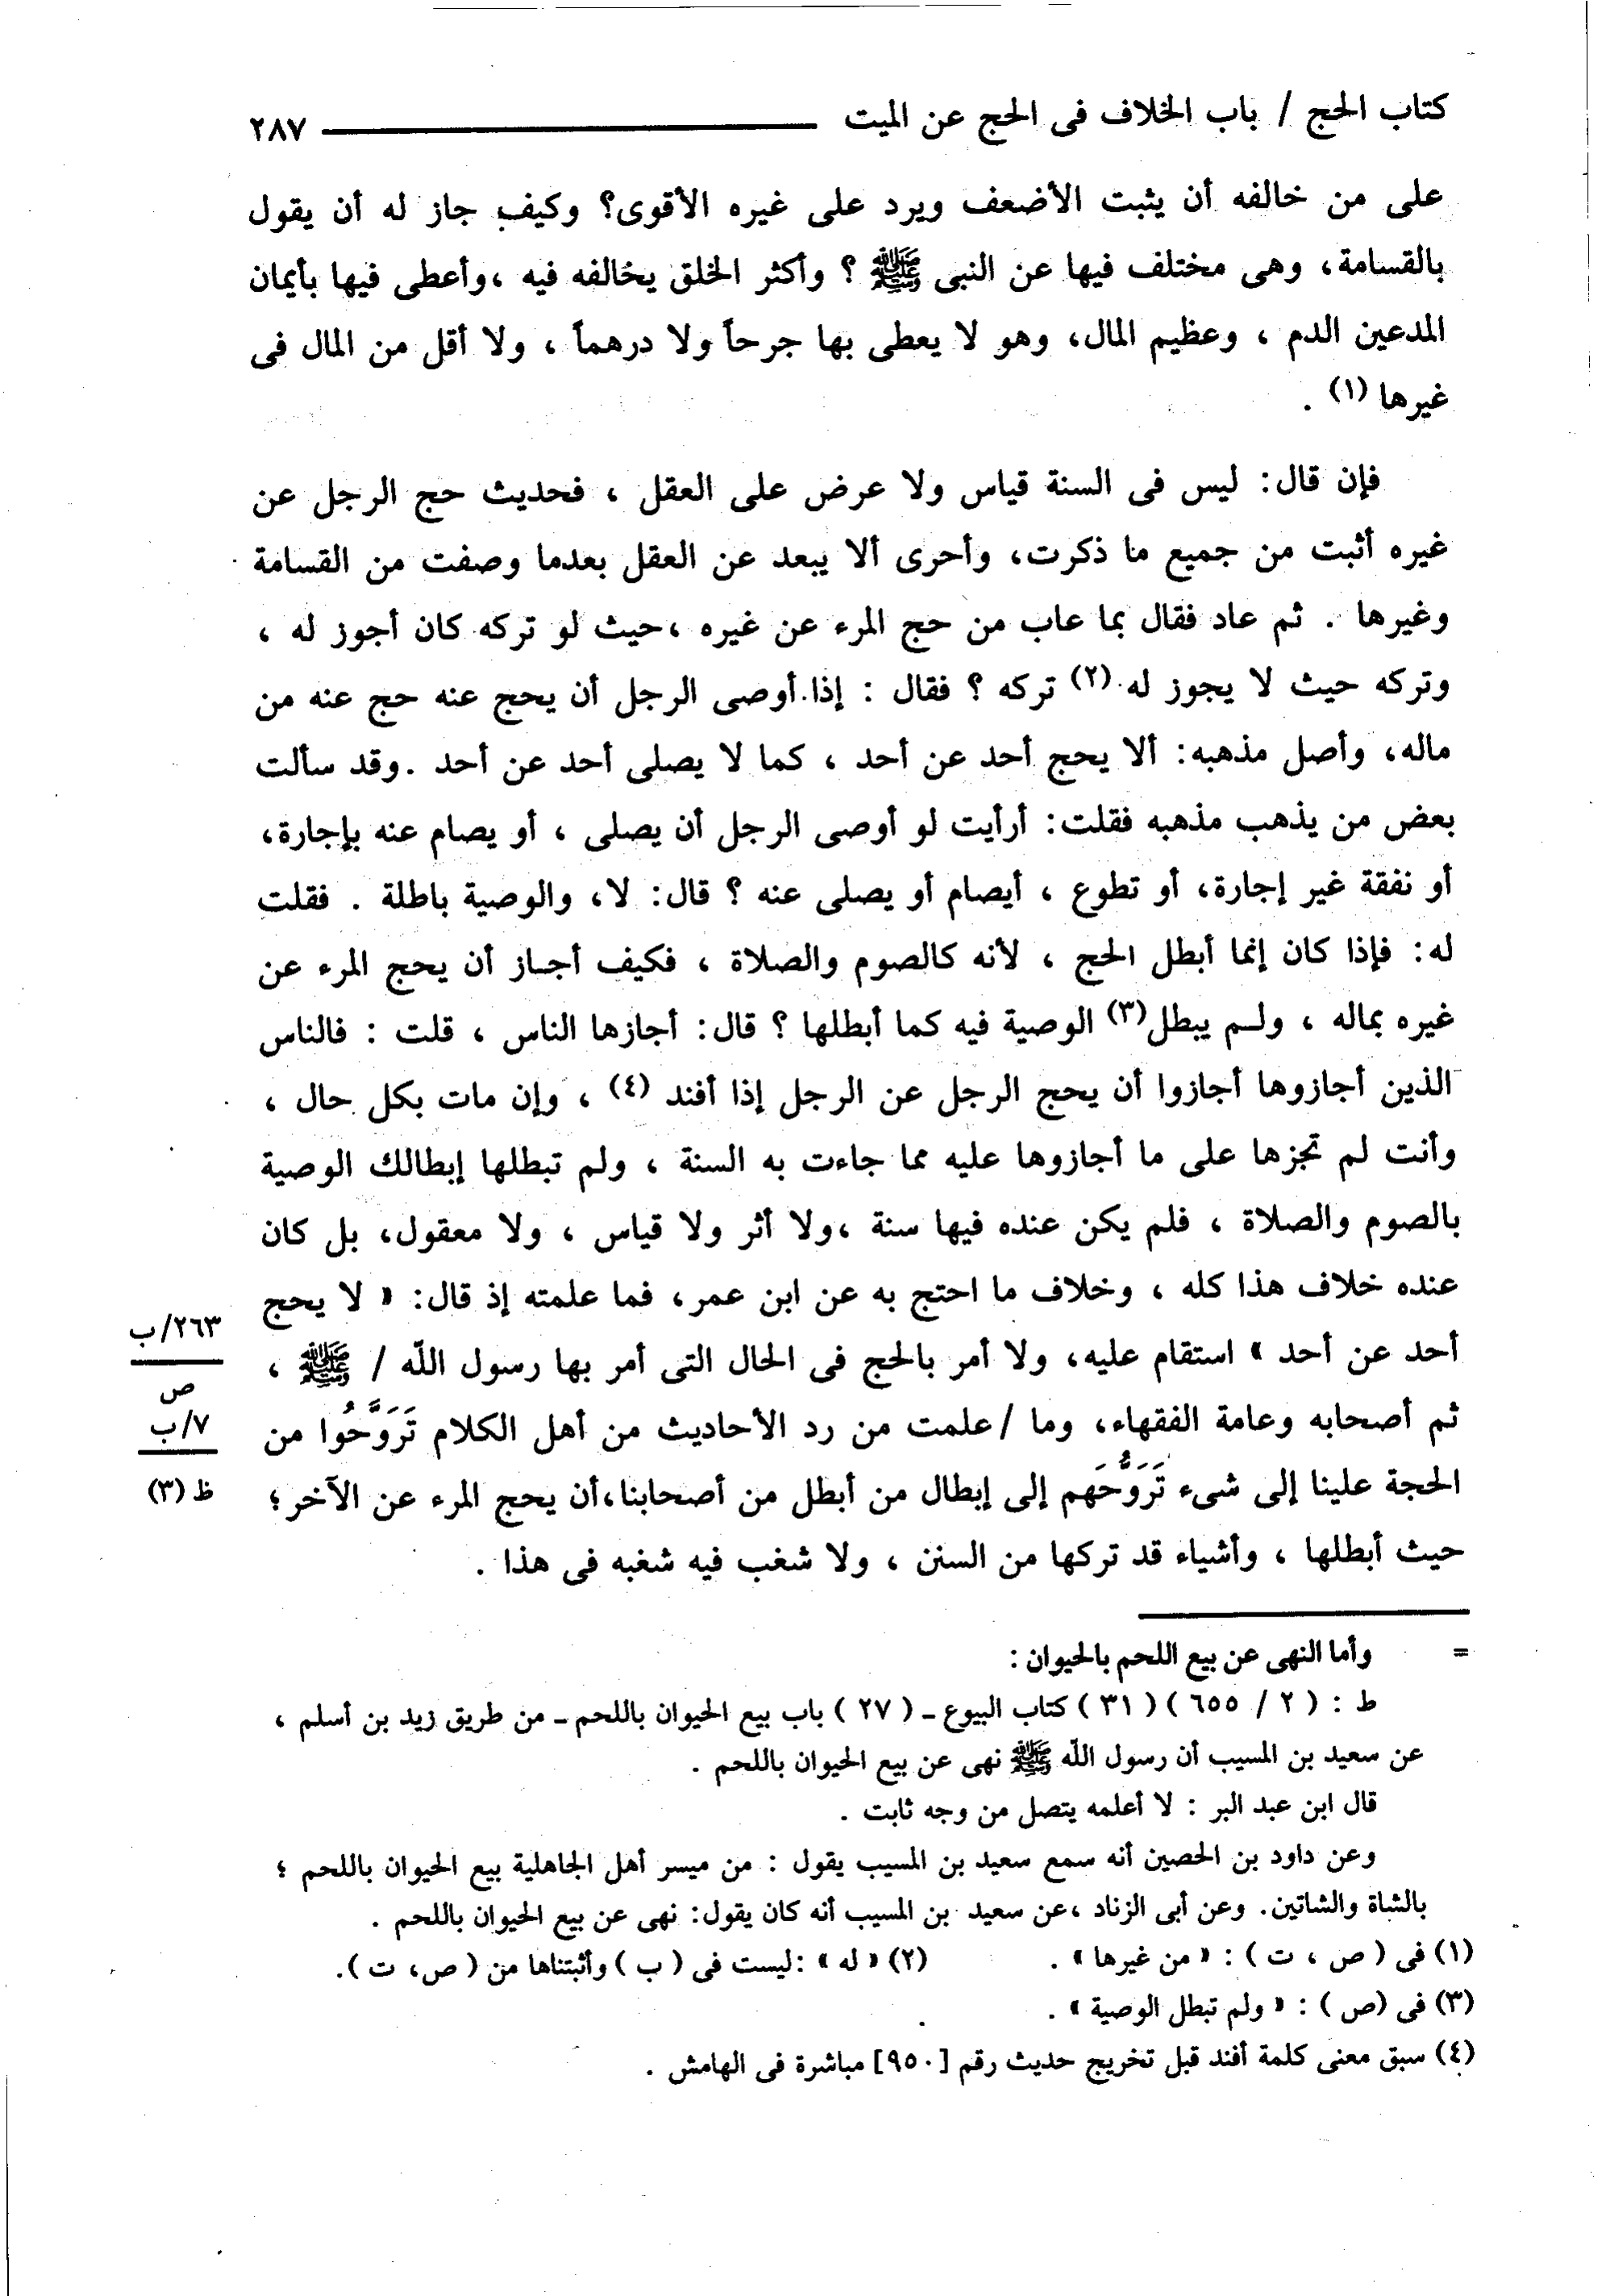 كتاب الحج / باب الخلاف فى الحج عن الميت ٢٨٧
على من خالفه أن يثبت الأضعف ويرد على غيره الأقوى؟ وكيف جاز له أن يقول
بالقسامة، وهى مختلف فيها عن النبى ﷺ ؟ وأكثر الخلق يخالفه فيه ،وأعطى فيها بأيمان
المدعين الدم ، وعظيم المال، وهو لا يعطى بها جرحاً ولا درهماً ، ولا أقل من المال فى
غيرها (١) .
فإن قال: ليس فى السنة قياس ولا عرض على العقل ، فحديث حج الرجل عن
غيره أثبت من جميع ما ذكرت، وأحرى ألا يبعد عن العقل بعدما وصفت من القسامة
وغيرها . ثم عاد فقال بما عاب من حج المرء عن غيره ،حيث لو تركه كان أجوز له ،
وتركه حيث لا يجوز له (٢) تركه ؟ فقال : إذا أوصى الرجل أن يحج عنه حج عنه من
ماله، وأصل مذهبه: ألا يحج أحد عن أحد ، كما لا يصلى أحد عن أحد .وقد سألت
بعض من يذهب مذهبه فقلت: أرأيت لو أوصى الرجل أن يصلى ، أو يصام عنه بإجارة،
أو نفقة غير إجارة، أو تطوع ، أيصام أو يصلى عنه ؟ قال: لا، والوصية باطلة . فقلت
له: فإذا كان إنما أبطل الحج ، لأنه كالصوم والصلاة ، فكيف أجاز أن يحج المرء عن
غيره بماله ، ولم يبطل(٣) الوصية فيه كما أبطلها ؟ قال: أجازها الناس ، قلت : فالناس
الذين أجازوها أجازوا أن يحج الرجل عن الرجل إذا أفند (٤) ، وإن مات بكل حال ،
وأنت لم تجزها على ما أجازوها عليه مما جاءت به السنة ، ولم تبطلها إبطالك الوصية
بالصوم والصلاة ، فلم يكن عنده فيها سنة ،ولا أثر ولا قياس ، ولا معقول، بل كان
عنده خلاف هذا كله ، وخلاف ما احتج به عن ابن عمر، فما علمته إذ قال: « لا يحج
٢٦٣/ب
أحد عن أحد » استقام عليه، ولا أمر بالحج فى الحال التى أمر بها رسول الله / ﷺ ،
ص
ثم أصحابه وعامة الفقهاء، وما /علمت من رد الأحاديث من أهل الكلام تَرَوَّحُوا من
٧/ب
الحجة علينا إلى شىء تَرَوُّحَهم إلى إبطال من أبطل من أصحابنا،أن يحج المرء عن الآخر ؛
ظ (٣)
حيث أبطلها ، وأشياء قد تركها من السنن ، ولا شغب فيه شغبه فى هذا .
= وأما النهى عن بيع اللحم بالحيوان :
ط : ( ٢ / ٦٥٥ ) ( ٣١ ) كتاب البيوع ـ ( ٢٧ ) باب بيع الحيوان باللحم ـ من طريق زيد بن أسلم ،
عن سعيد بن المسيب أن رسول الله ﷺ نهى عن بيع الحيوان باللحم .
قال ابن عبد البر : لا أعلمه يتصل من وجه ثابت .
وعن داود بن الحصين أنه سمع سعيد بن المسيب يقول : من ميسر أهل الجاهلية بيع الحيوان باللحم ؛
بالشاة والشاتين. وعن أبى الزناد ،عن سعيد بن المسيب أنه كان يقول: نهى عن بيع الحيوان باللحم .
(١) فى ( ص ، ت ) : « من غيرها » . (٢) « له » :ليست فى ( ب ) وأثبتناها من ( ص، ت ).
(٣) فى (ص ) : « ولم تبطل الوصية » .
(٤) سبق معنى كلمة أفند قبل تخريج حديث رقم [٩٥٠] مباشرة فى الهامش .